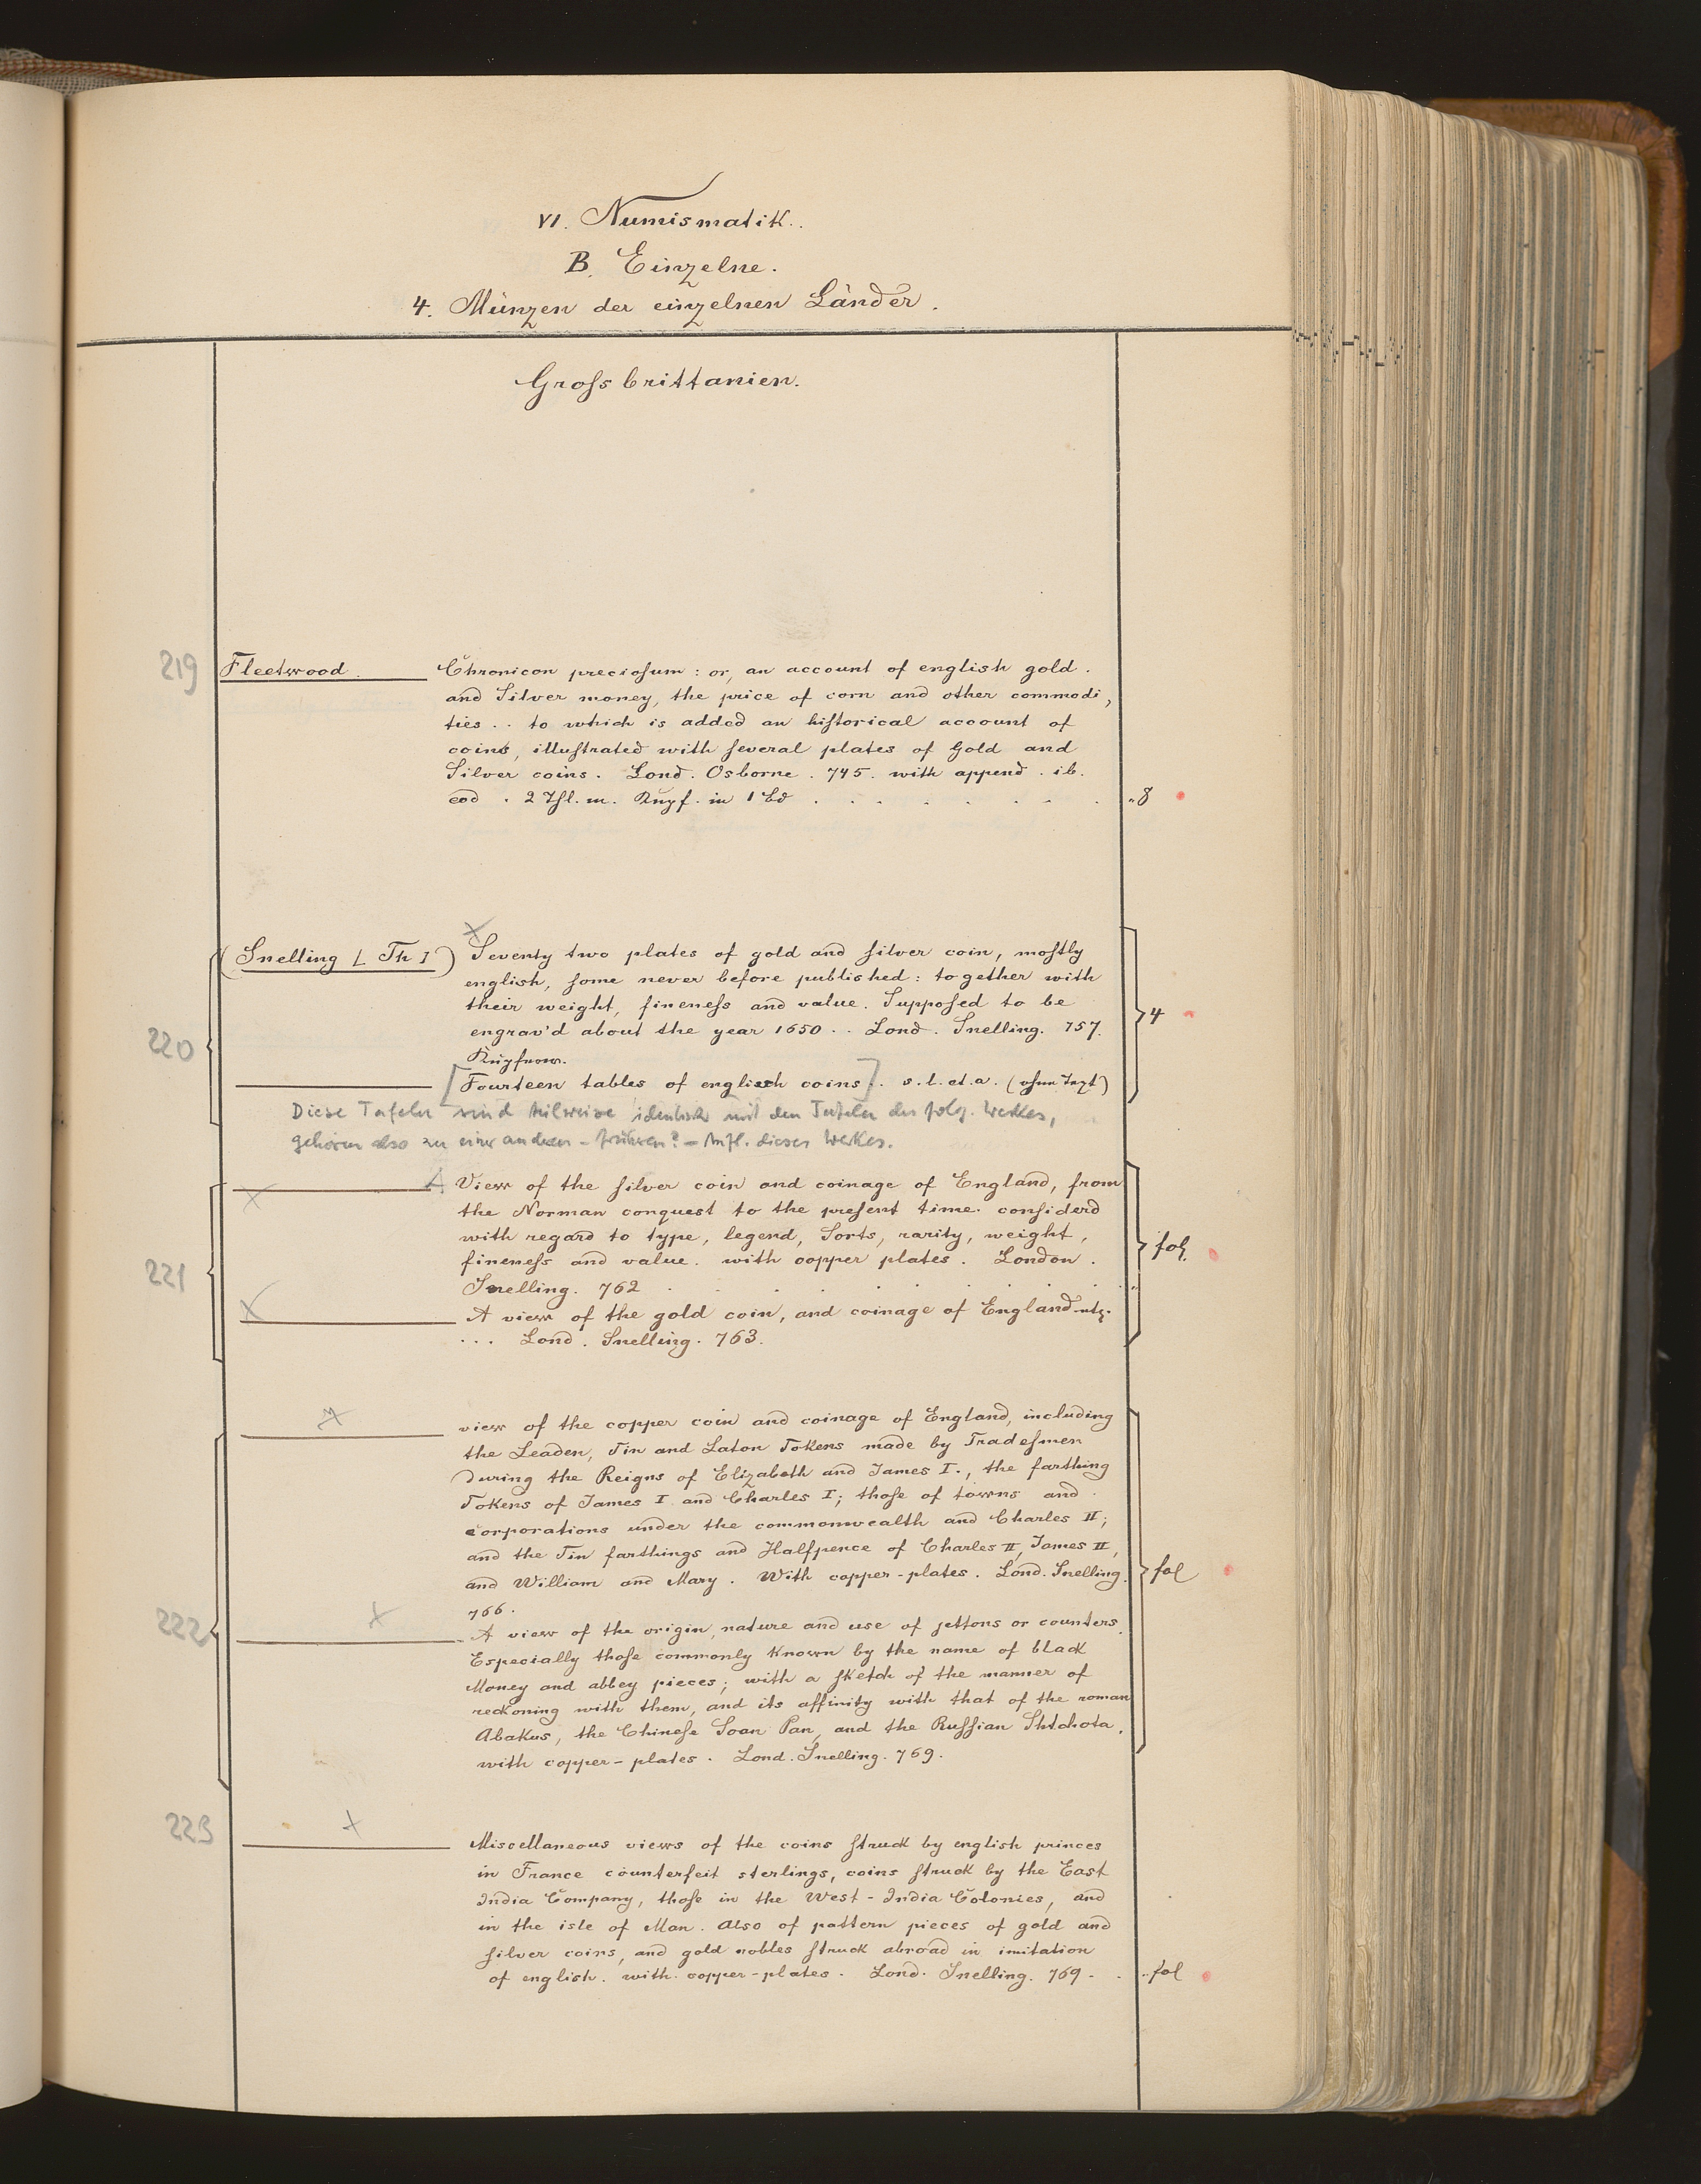 VI. Numismatik.
B. Einzelne.
4. Münzen der einzelnen Länder.
Grossbrittanien.
219 Fleetwood. Chronicon preciosum: or, an account of english gold
and Silver money, the price of corn and other commodi,
ties .. to which is added an historical account of
coins, illustrated with several plates of Gold and
Silver coins. Lond. Osborne. 745. with append. ib.
eod. 2 Thl. m. Kupf. in 1 Bd . . . . . . 8
(Snelling [Th]) Seventy two plates of gold and silver coin, mostly
english, some never before published: together with
their weight, fineness and value. Supposed to be
engrav'd about the year 1650 .. Lond. Snelling. 757. 4
220
[Fourteen tables of english coins]. s. l. et. a. (ohne Text)
Diese Tafeln sind teilweise identisch mit den Tafeln des folg. Werkes,
gehören also zu einer anderen - früheren? - Aufl. dieses Werkes.
A View of the silver coin and coinage of England, from
the Norman conquest to the present time. considerd
with regard to type, legend, Sorts, rarity, weight,
fineness and value. with copper plates. London. fol.
221 Snelling. 762
A view of the gold coin, and coinage of England etc.
... Lond. Snelling. 763.
view of the copper coin and coinage of England, including
the Leaden, Tin and Laton Tokens made by Tradesmen
during the Reigns of Elizabeth and James I., the farthing
Tokens of James I and Charles I; those of towns and
corporations under the commonwealth and Charles II;
and the Tin farthings and Halfpence of Charles II, James II,
and William and Mary. With copper-plates. Lond. Snelling. fol
766.
222 A view of the origin, nature and use of jettons or counters.
Especially those commonly known by the name of black
Money and abbey pieces; with a sketch of the manner of
reckoning with them, and its affinity with that of the roman
Abakus, the Chinese Soan Pan, and the Russian Shtchota.
with copper-plates. Lond. Snelling. 769.
223 Miscellaneous views of the coins struck by english princes
in France counterfeit sterlings, coins struck by the East
India Company, those in the West-India Colonies, and
in the isle of Man. Also of pattern pieces of gold and
silver coins, and gold nobles struck abroad in imitation
of english. with copper-plates. Lond. Snelling. 769. . . fol